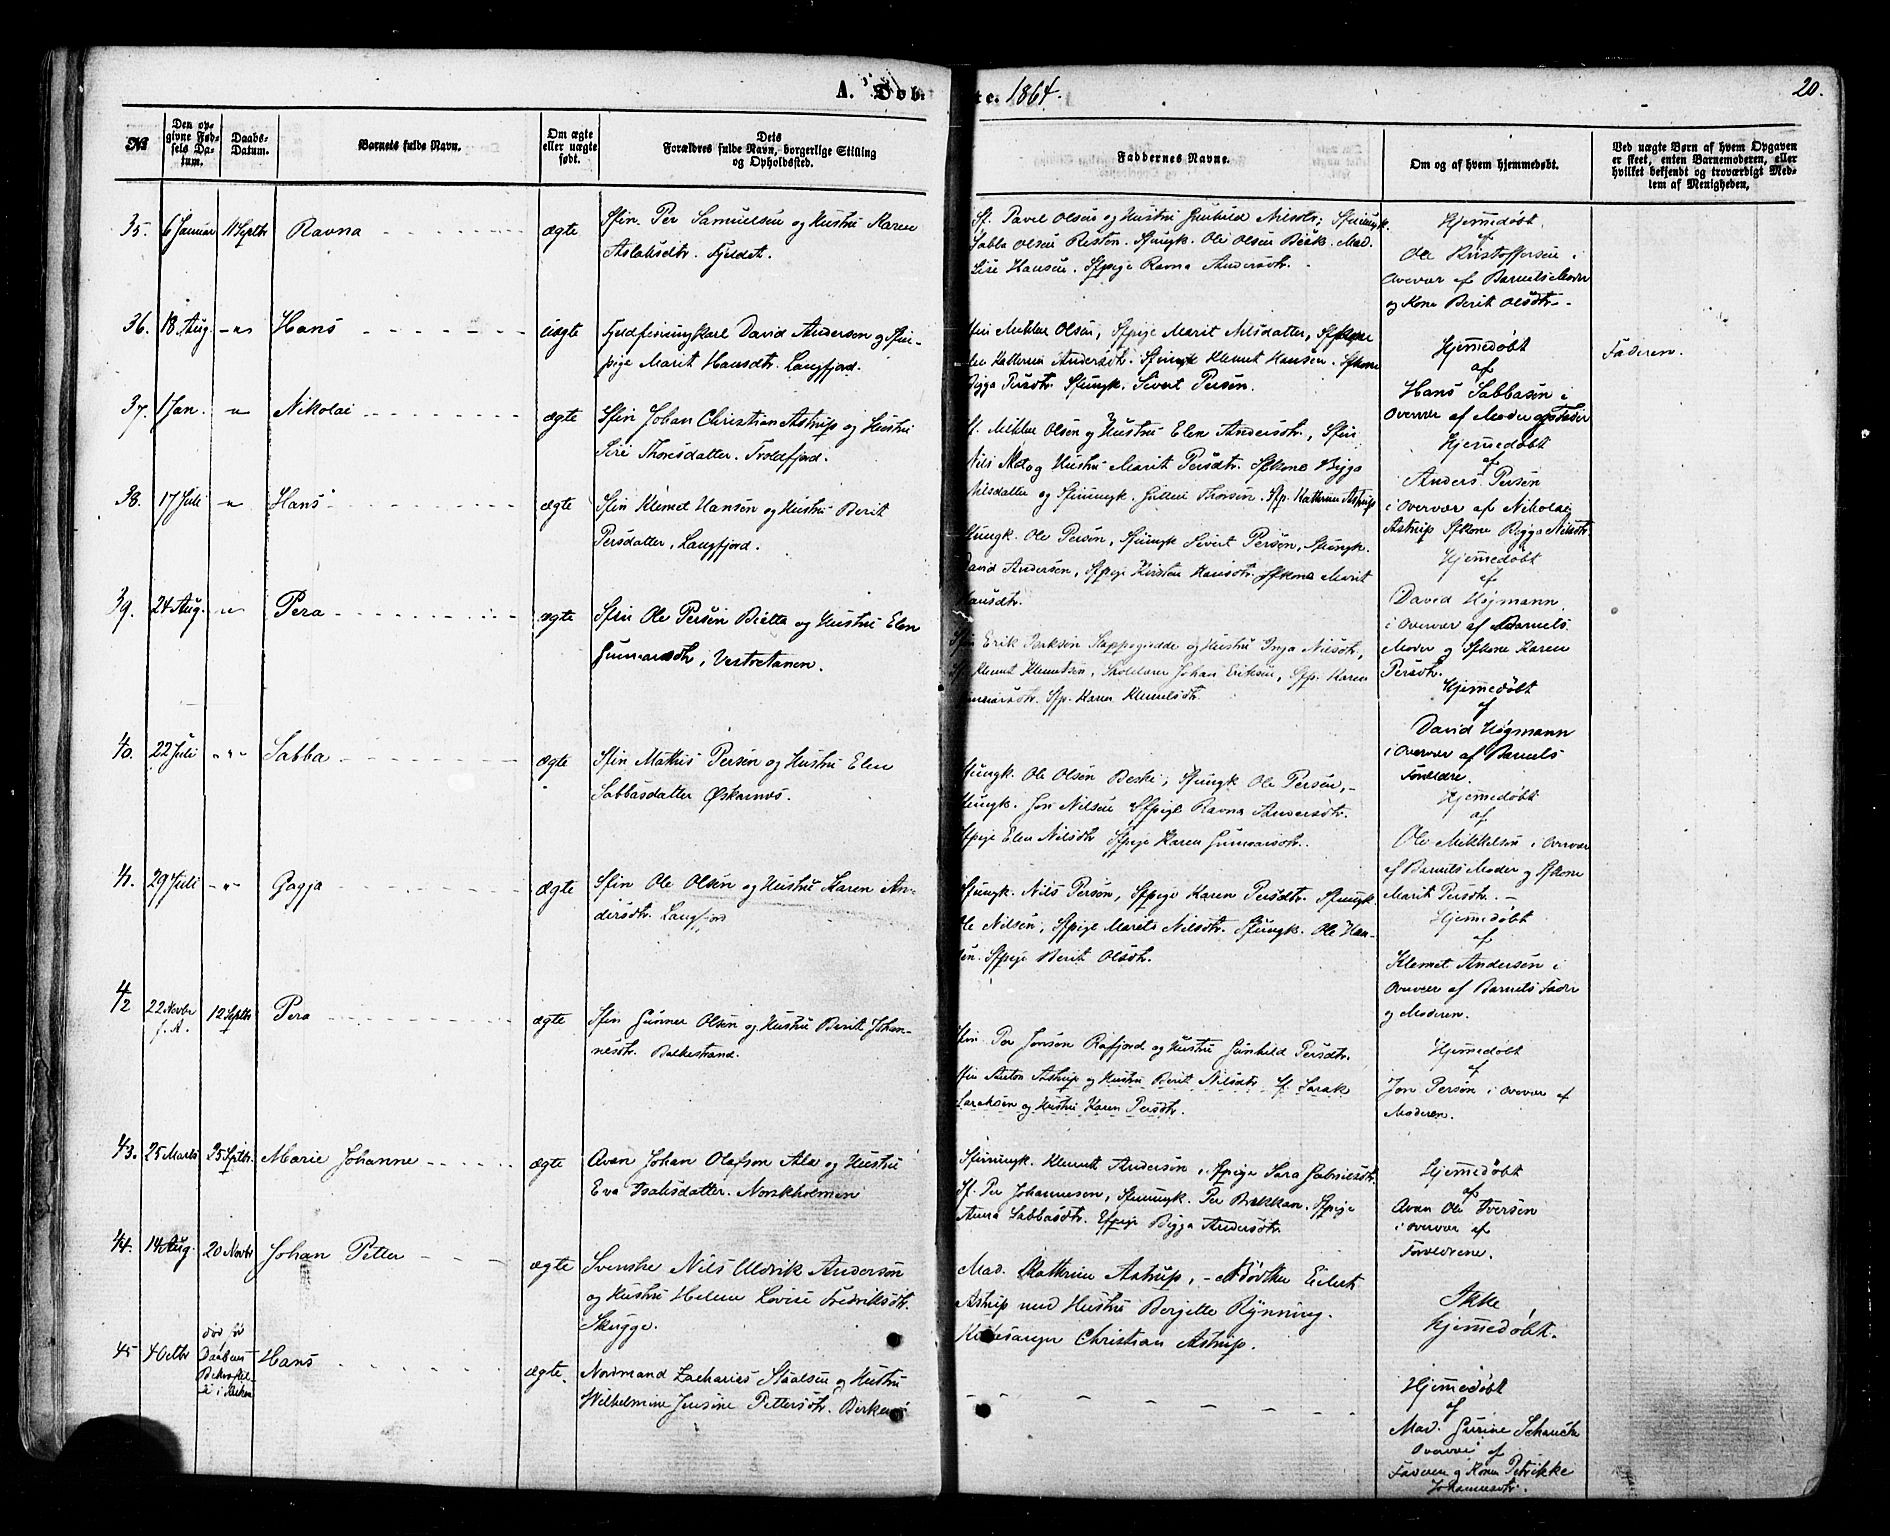 A. Døb-
te. 1864.
20.
No
Den op-
givne Fød-
sels Da-
tum.
Daabs-
Datum.
Barnets fulde Navn.
Om ægte
eller uægte
født.
Dets
Forældres fulde Navn, borgerlige Stilling
og Opholdssted.
Faddernes Navne.
Om og af hvem hjemmedøbt.
Ved uægte Børn af hvem Opgaven
er skeet, enten Barnemoderen, eller
hvilket bekjendt og troværdigt Med-
lem af Menigheden.
35. 6 Januar 11 Septbr Ravna ægte
Sfin. Per Samuelsen og Hustru Karen
Aslaksdtr. Fjeldet.
Sf. Pavel Olsen og Hustru Gunhild Nilsdtr; Sfuingk.
Sabba Olsen Beston. Sfungk. Ole Olsen Mad.
Lise Hansen. Sfpige Ravna Andersdtr.
Hjemmedøbt
af
Ole Kristoffersen i
Overvær af Barnets Moder
og Kone Berit Olsdtr.
36. 18 Aug. Hans uægte
Fjeldfinungkarl David Anderson og Sfin-
pige Marit Hansdtr. Langfjord.
Sfin Mikkel Olsen, Sfpige Marit Nilsdatter, Sfkone
Kathrina Andersdtr. Sfungk Klemet Hansen. Sfkone
Bigga Persdtr. Sfungk. Sivert Persen.
Hjemmedøbt
af
Hans Sabbasen i
Overvær af Moder og Fader
Faderen.
37. 1 Jan. Nikolai ægte
Sfin Johan Christian Astrup og Hustru
Siri Thoresdatter. Troldfjord.
Sf. Mikkel Olsen og Hustru Elen Andersdtr., Sfin
Nils og Hustru Marit Persdtr. Sfkone Bigga
Nilsdatter og Sfinungk. Thorsen. Sfp. Kathrine Astrup
Hjemmedøbt
af
Anders Persen
i Overvær af Nikolai
Astrup Sfkone Bigga Nilsdtr.
38. 17 Juli Hans ægte
Sfin Klemet Hansen og Hustru Berit
Persdatter, Langfjord.
Sfungk. Ole Persen, Sfungk Sivert Persen, Sfungk.
David Andersen, Sfpige Kirsten Hansdtr. Sfkone Marit
Hansdtr.
Hjemmedøbt
af
David Høgmann
i Overvær af Barnets
Moder og Sfkone Karen
Persdtr.
39. 24 Aug. Pera ægte
Sfin Ole Persen Bietta og Hustru Elen
Gunnarsdtr, Vestretanen.
Sfin Erik og Hustru Inga Nilsdtr,
Sf. Klemet Klemetsen, Johan Eriksen, Sfp. Karen
Gunnarsdtr. Sfp. Karen Klemetsdtr.
Hjemmedøbt
af
David Høgmann
i Overvær af Barnets
Forældre.
40. 22 Juli Sabba ægte
Sfin Mathis Persen og Hustru Elen
Sabbasdatter Øskarnæs.
Sfungk. Ole Olsen Beska, Sfungk Ole Persen,
Sfungk. Jon Nilsen Sfpige Ravna Andersdtr.
Sfpige Elen Nilsdtr Sfpige Karen Gunnarsdtr.
Hjemmedøbt
af
Ole Mikkelsen i Overvær
af Barnets Moder og Sfkone
Marit Persdtr.
41. 29 Juli Gagja ægte
Sfin Ole Olsen og Hustru Karen An-
dersdtr. Langfjord
Sfungk. Nils Persen, Sfpige Karen Persdtr. Sfungk.
Ole Nilsen, Sfpige Marit Nilsdtr. Sfungk. Ole Han-
sen. Sfpige Berit Olsdtr.
Hjemmedøbt
af
Klemet Andersen i
Overvær af Barnets Fader
og Moderen.
42 22 Novbr f. A. 12 Septbr Pera ægte
Sfin Gunner Olsen og Hustru Berit Johan-
nesdtr. Bakkestrand.
Sfin. Per Jonsen Rafjord og Hustru Gunhild Persdtr.
Sfin Anton Astrup og Hustru Berit Nilsdtr, Sf. Sarak
Saraksen og Hustru Karen Persdtr.
Hjemmedøbt
af
Jon Persen i overvær af
Moderen.
43. 25 Marts 25 Septbr. Marie Johanne ægte
Qvæn Johan Olafson Ala og Hustru
Eva Isaksdatter. Norskholmen
Sfinungk. Klemet Andersen, Sfpige Sara Gabrielsdtr.
Sf. Per Johannesen, Sfinungk. Per Bækkan. Sfpige
Anna Sabbasdtr. Sfpige Bigga Andersdtr.
Hjemmedøbt
af
Qvæn Ole Iversen
i overvær af
Forældrene.
44. 14 Aug. 20 Novbr Johan Petter ægte
Svenske Nils Uldrik Anderson
og Hustru Helena Lovise Fredriksdtr.
Skugge.
Mad. Kathrine Astrup, Eilert
Astrup med Hustru Bergitte Rynning.
Kirkesanger Christian Astrup.
Ikke
hjemmedøbt.
45 4 Octbr
død før
Daabens
Bekræftel-
se i Kirken
Hans ægte.
Nordmand Zacharias Staalsen og Hustru
Wilhelmine Jensine Pettersdtr. Birkenæs
Hjemmedøbt
af
Mad. Gurine Schanche
Overvær af
Faderen og Konen Petrikke
Johannesdtr.